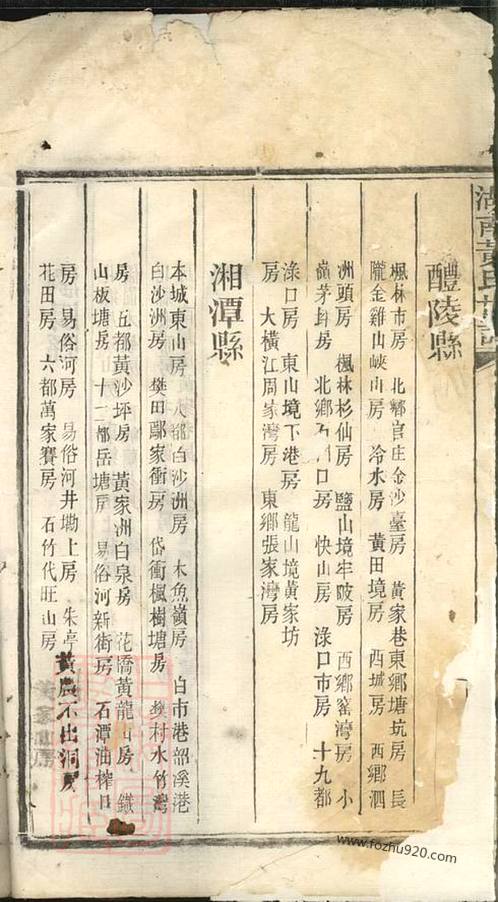 湖南黃氏
醴陵縣
楓林市房 北鄉官庄金沙臺房 黃家巷東鄉塘坑房 長
隴金雞山峽山房 冷水房 黃田境房 西城房 西鄉泗
洲頭房 楓林杉仙房 鹽山境牢陂房 西鄉窑灣房 小
嶺茅房 北鄉口房 快山房 淥口市房 十九都
淥口房 東山境下港房 龍山境黃家坊
房 大橫江周家灣房 東鄉張家灣房
湘潭縣
本城東山房 都白沙洲房 木魚嶺房 白市港韶溪港
白沙洲房 樊田鄢家衝房 岱衝楓樹塘房 樊村水竹灣
房 五都黃沙坪房 黃家洲白泉房 花橋黃龍山房 鐵
山板塘房 十三都岳塘房 易俗河新街房 石潭油榨口
房 易俗河房 易俗河井塝上房 朱亭黃農不出洞房
花田房 六都萬家賽房 石竹代旺山房
www.fozhu920.com